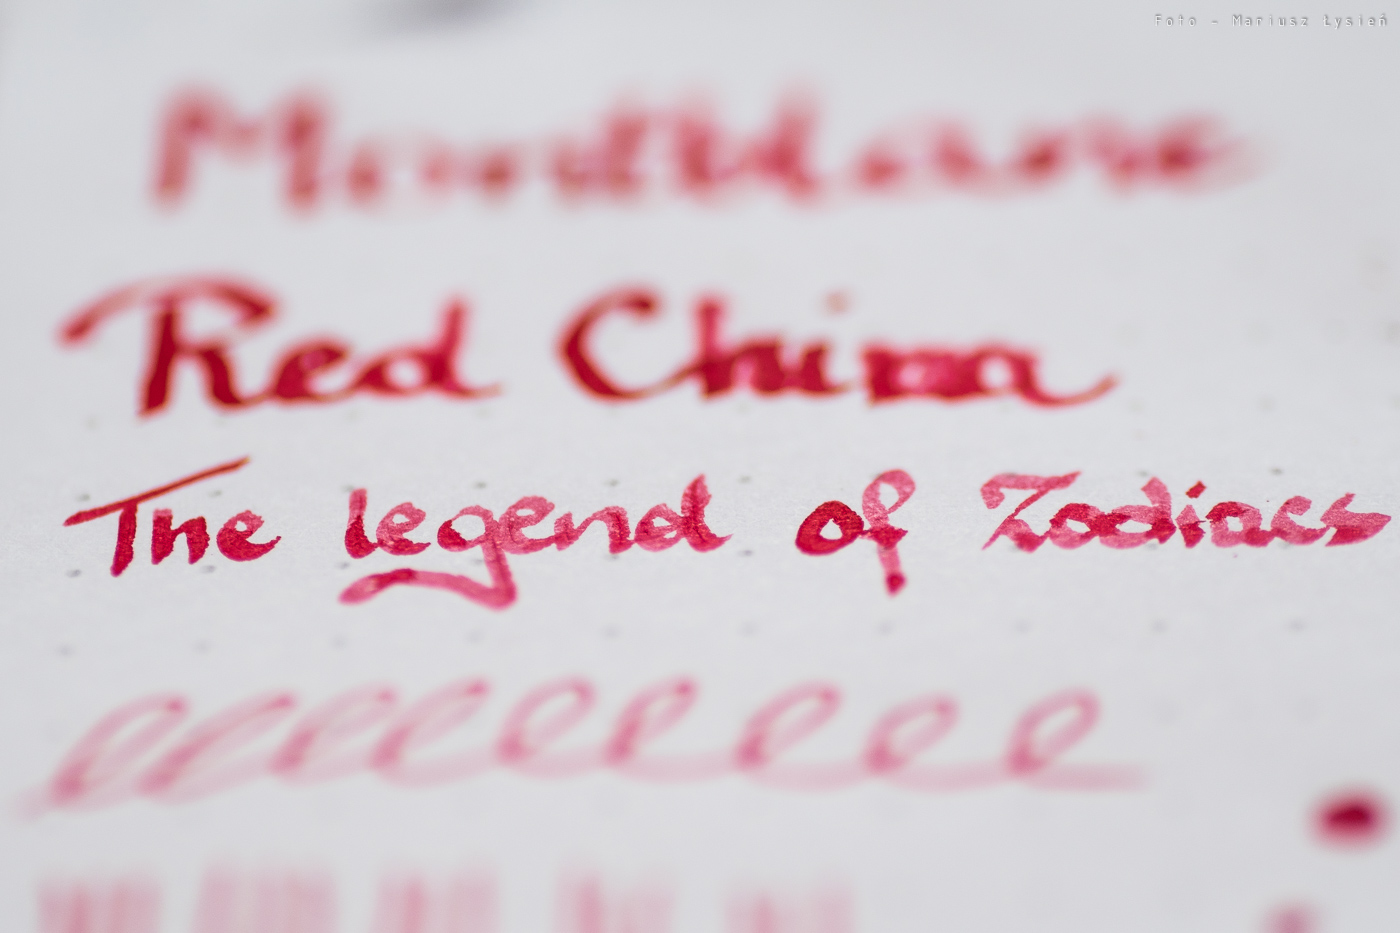 Foto - Mariusz Łysień
Montblanc
Red China
The legend of Zodiacs